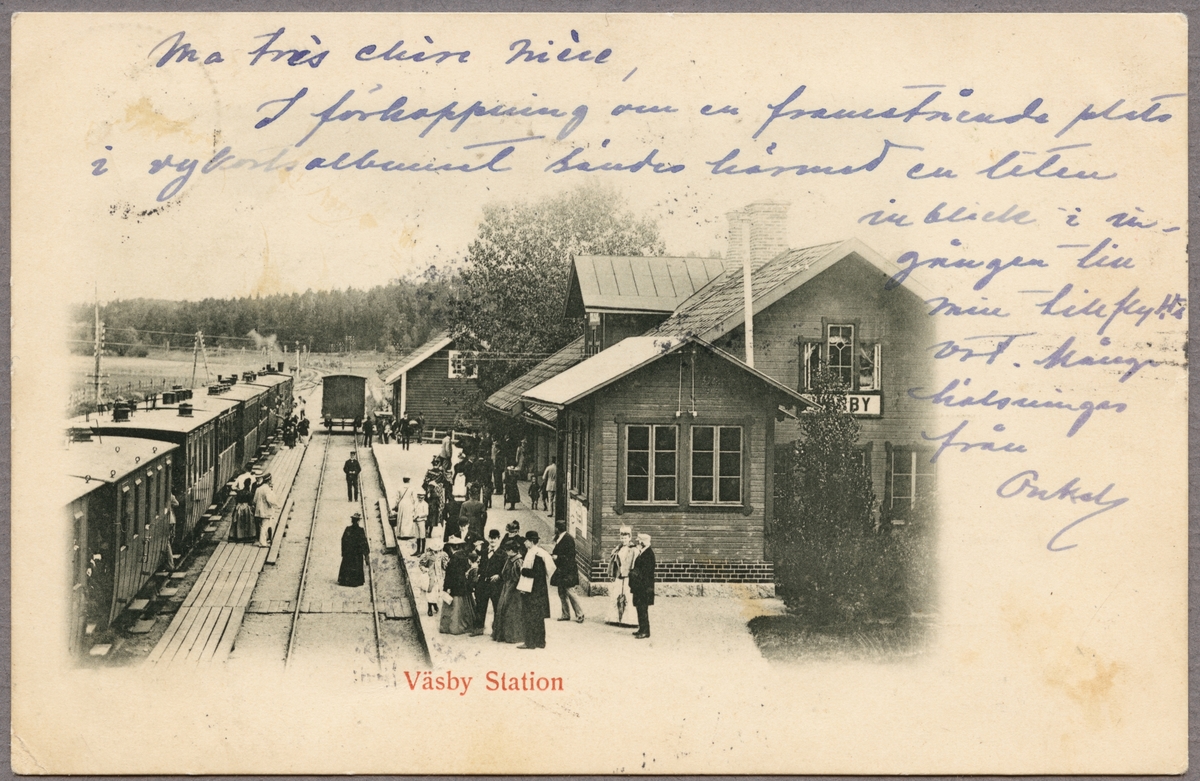 Ma très chère Nièce,
I förhoppning om en framstående plats
i vykortsalbumet sändes härmed en liten
inblick i in-
gången till
min tillflykts
ort. Många
hälsningar
från
Onkel
VÄSBY
Väsby Station